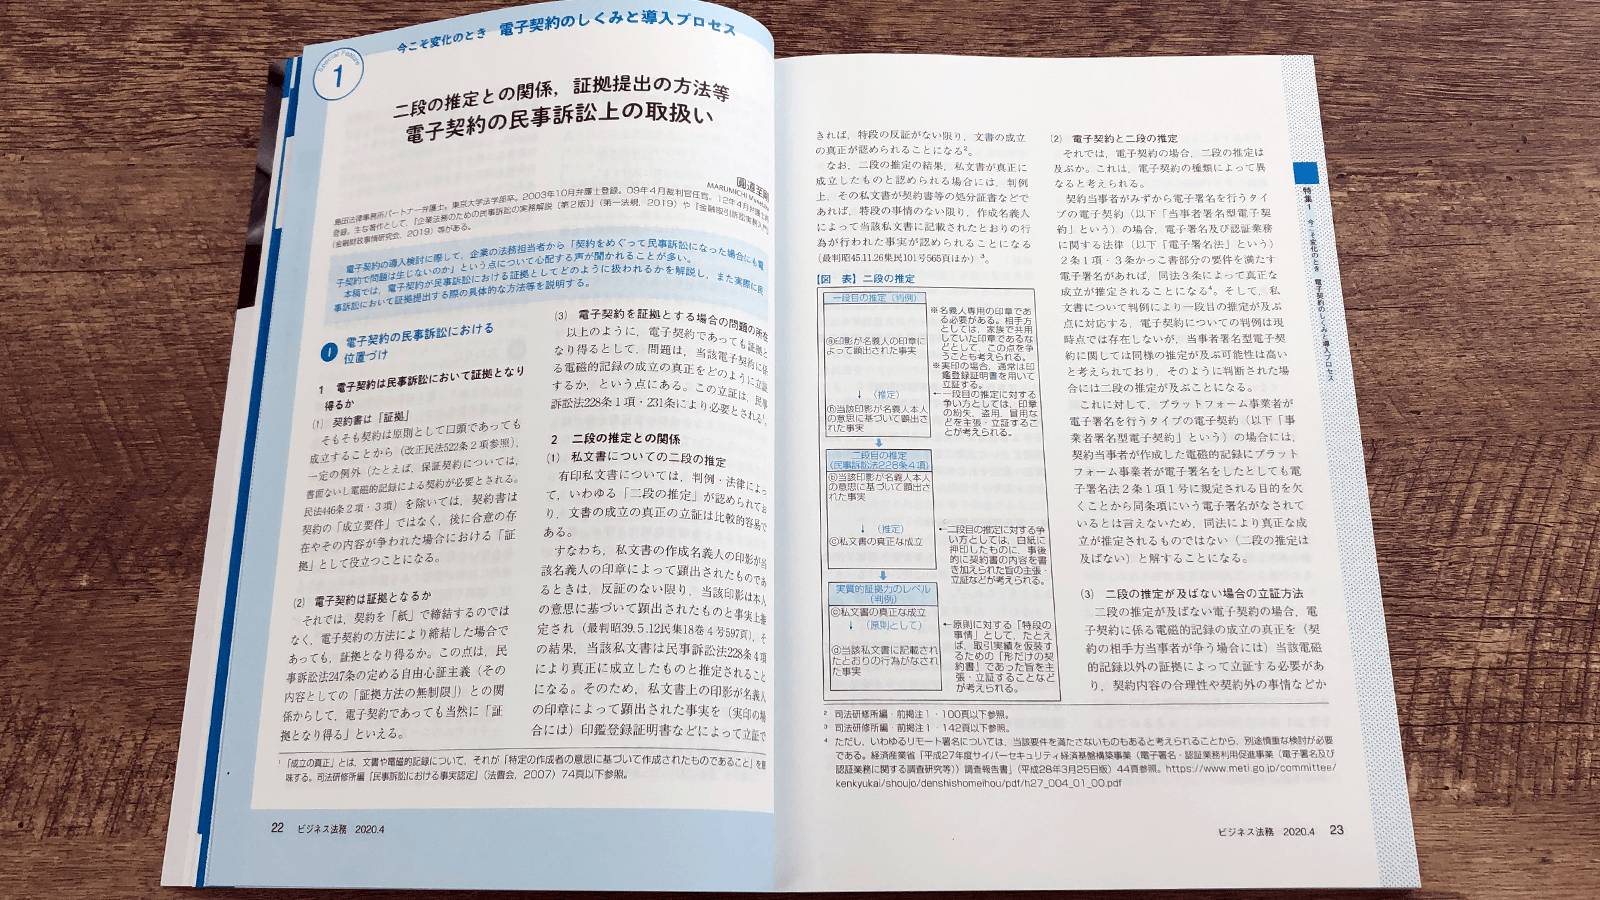 今こそ変化のとき 電子契約のしくみと導入プロセス
Special Feature
1
二段の推定との関係，証拠提出の方法等
電子契約の民事訴訟上の取扱い
圓道至剛
MARUMICHI
島田法律事務所パートナー弁護士。東京大学法学部卒。2003年10月弁護士登録。09年4月裁判官任官。12年4月弁護士再
登録。主な著作として，『企業法務のための民事訴訟の実務解説〔第2版〕』（第一法規，2019）や『金融取引訴訟実務入門』
（金融財政事情研究会，2019）等がある。
電子契約の導入検討に際して，企業の法務担当者から「契約をめぐって民事訴訟になった場合にも電
子契約で問題は生じないのか」という点について心配する声が聞かれることが多い。
本稿では，電子契約が民事訴訟における証拠としてどのように扱われるかを解説し，また実際に民
事訴訟において証拠提出する際の具体的な方法等を説明する。
Ⅰ 電子契約の民事訴訟における
位置づけ
1 電子契約は民事訴訟において証拠となり
得るか
(1) 契約書は「証拠」
そもそも契約は原則として口頭であっても
成立することから（改正民法522条2項参照），
一定の例外（たとえば，保証契約については，
書面ないし電磁的記録による契約が必要とされる。
民法446条2項・3項）を除いては，契約書は
契約の「成立要件」ではなく，後に合意の存
在やその内容が争われた場合における「証
拠」として役立つことになる。
(2) 電子契約は証拠となるか
それでは，契約を「紙」で締結するのでは
なく，電子契約の方法により締結した場合で
あっても，証拠となり得るか。この点は，民
事訴訟法247条の定める自由心証主義（その
内容としての「証拠方法の無制限」）との関
係からして，電子契約であっても当然に「証
拠となり得る」といえる。
(3) 電子契約を証拠とする場合の問題の所在
以上のように，電子契約であっても証拠と
なり得るとして，問題は，当該電子契約に係
る電磁的記録の成立の真正をどのように立証
するか，という点にある。この立証は，民事
訴訟法228条1項・231条により必要とされる1。
2 二段の推定との関係
(1) 私文書についての二段の推定
有印私文書については，判例・法律によっ
て，いわゆる「二段の推定」が認められてお
り，文書の成立の真正の立証は比較的容易で
ある。
すなわち，私文書の作成名義人の印影が当
該名義人の印章によって顕出されたものであ
るときは，反証のない限り，当該印影は本人
の意思に基づいて顕出されたものと事実上推
定され（最判昭39.5.12民集18巻4号597頁），そ
の結果，当該私文書は民事訴訟法228条4項
により真正に成立したものと推定されること
になる。そのため，私文書上の印影が名義人
の印章によって顕出された事実を（実印の場
合には）印鑑登録証明書などによって立証で
1 「成立の真正」とは，文書や電磁的記録について，それが「特定の作成者の意思に基づいて作成されたものであること」を意
味する。司法研修所編『民事訴訟における事実認定』（法曹会，2007）74頁以下参照。
22 ビジネス法務 2020.4
きれば，特段の反証がない限り，文書の成立
の真正が認められることになる2。
なお，二段の推定の結果，私文書が真正に
成立したものと認められる場合には，判例
上，その私文書が契約書等の処分証書などで
あれば，特段の事情のない限り，作成名義人
によって当該私文書に記載されたとおりの行
為が行われた事実が認められることになる
（最判昭45.11.26集民101号565頁ほか）3。
【図 表】二段の推定
一段目の推定（判例）
ⓐ印影が名義人の印章に
よって顕出された事実
↓（推定）
ⓑ当該印影が名義人本人
の意思に基づいて顕出さ
れた事実
※名義人専用の印章であ
る必要がある。相手方
としては，家族で共用
していた印章であるな
どとして，この点を争
うことも考えられる。
※実印の場合，通常は印
鑑登録証明書を用いて
立証する。
←一段目の推定に対する
争い方としては，印章
の紛失，盗用，冒用な
どを主張・立証するこ
とが考えられる。
二段目の推定
（民事訴訟法228条4項）
ⓑ当該印影が名義人本人
の意思に基づいて顕出さ
れた事実
↓（推定）
ⓒ私文書の真正な成立
←二段目の推定に対する争
い方としては，白紙に
押印したものに，事後
的に契約書の内容を書
き加えられた旨の主張・
立証などが考えられる。
実質的証拠力のレベル
（判例）
ⓒ私文書の真正な成立
↓（原則として）
ⓓ当該私文書に記載され
たとおりの行為がなされ
た事実
←原則に対する「特段の
事情」として，たとえ
ば，取引実績を仮装す
るための「形だけの契
約書」であった旨を主
張・立証することなど
が考えられる。
(2) 電子契約と二段の推定
それでは，電子契約の場合，二段の推定は
及ぶか。これは，電子契約の種類によって異
なると考えられる。
契約当事者がみずから電子署名を行うタイ
プの電子契約（以下「当事者署名型電子契
約」という）の場合，電子署名及び認証業務
に関する法律（以下「電子署名法」という）
2条1項・3条かっこ書部分の要件を満たす
電子署名があれば，同法3条によって真正な
成立が推定されることになる4。そして，私
文書について判例により一段目の推定が及ぶ
点に対応する，電子契約についての判例は現
時点では存在しないが，当事者署名型電子契
約に関しては同様の推定が及ぶ可能性は高い
と考えられており，そのように判断された場
合には二段の推定が及ぶことになる。
これに対して，プラットフォーム事業者が
電子署名を行うタイプの契約（以下「事
業者署名型電子契約」という）の場合には，
契約当事者が作成した電磁的記録にプラット
フォーム事業者が電子署名をしたとしても電
子署名法2条1項1号に規定される目的を欠
くことから同条項にいう電子署名がなされて
いるとは言えないため，同法により真正な成
立が推定されるものではない（二段の推定は
及ばない）と解することになる。
(3) 二段の推定が及ばない場合の立証方法
二段の推定が及ばない電子契約の場合，電
子契約に係る電磁的記録の成立の真正を（契
約の相手方当事者が争う場合には）当該電磁
的記録以外の証拠によって立証する必要があ
り，契約内容の合理性や契約外の事情などか
2 司法研修所編・前掲注1・100頁以下参照。
3 司法研修所編・前掲注1・142頁以下参照。
4 ただし，いわゆるリモート署名については，当該要件を満たさないものもあると考えられることから，別途慎重な検討が必要
である。経済産業省「平成27年度サイバーセキュリティ経済基盤構築事業（電子署名・認証業務利用促進事業（電子署名及び
認証業務に関する調査研究等））調査報告書」（平成28年3月25日版）44頁参照。https://www.meti.go.jp/committee/
kenkyukai/shoujo/denshishomeihou/pdf/h27_004_01_00.pdf
ビジネス法務 2020.4 23
特集1 今こそ変化のとき 電子契約のしくみと導入プロセス